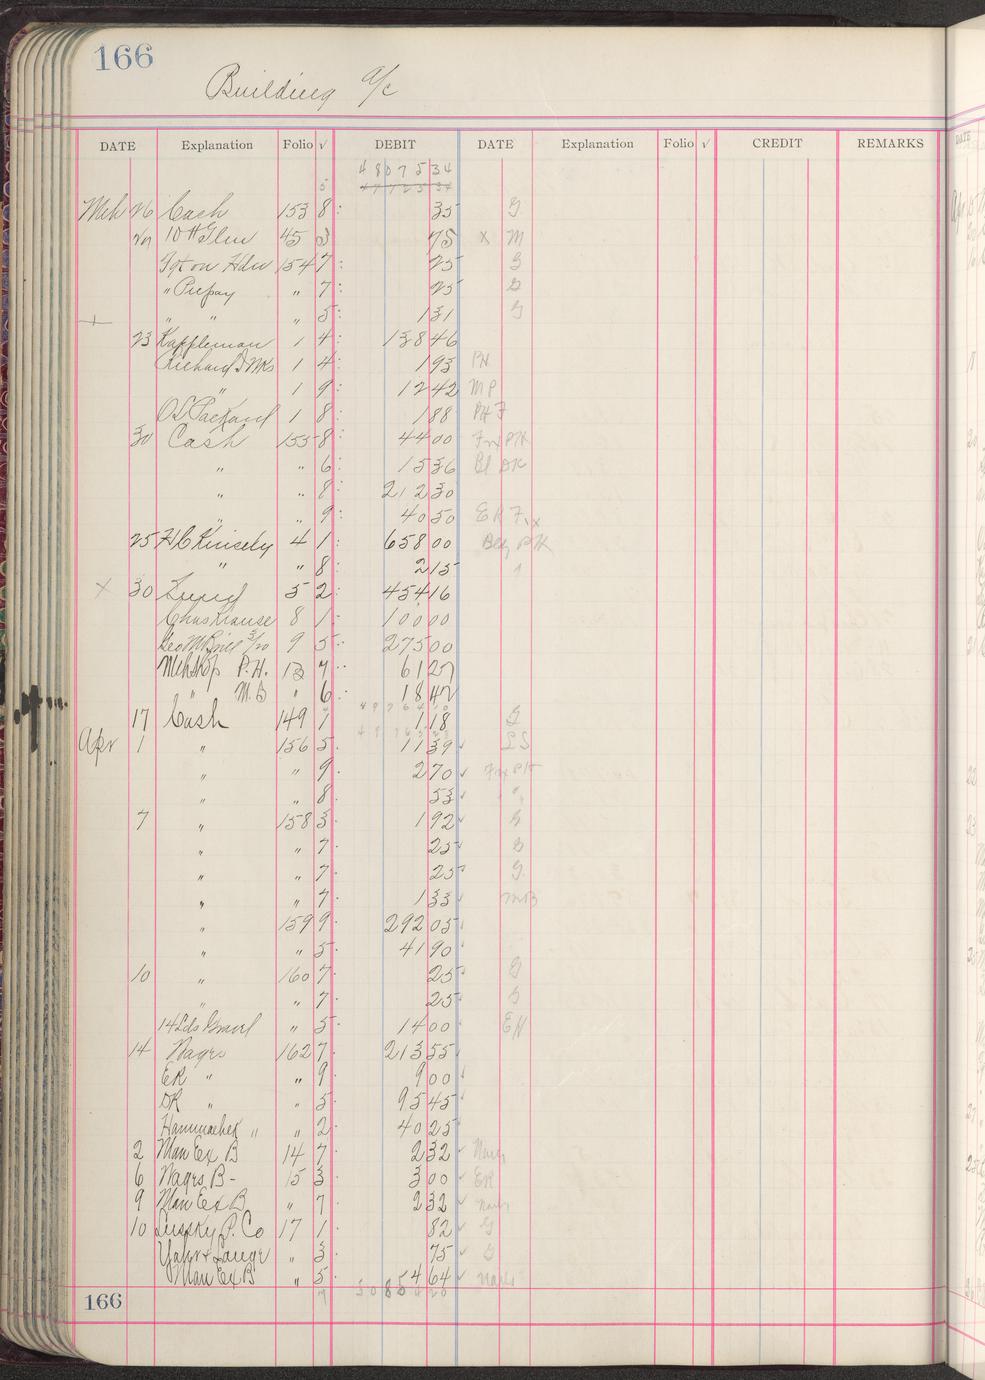 166
Building a/c
DATE Explanation Folio √ DEBIT DATE Explanation Folio √ CREDIT REMARKS
4 8 0 7 5 34
Mch 26 Cash 153 8: 35 G
45 3 75 x M
Hdw 154 7: 25 G
" Prepay " 7: 25 G
" " " 5: 1 31 G
23 Kappleman 1 4: 138 46
Richard 1 4: 1 93 PH
" 1 9: 12 42 MP
O L Packard 1 8: 1 88 PH F
30 Cash 155 8: 44 00 PH
" " 6: 15 36 Bl DK
" " 8: 212 30
" " 9: 40 50
25 H C Kinsely 4 1: 658 00
" " 8: 2 15
x 30 5 2: 454 16
Chas Krause 8 1: 100 00
Geo M 3/20 9 5: 275 00
Mchshop P.H. 13 7: 61 27
" M.B " 6: 18 42
17 Cash 149 7 1 18 G
Apr 1 " 156 5. 11 39 √ LS
" " 9. 2 70 √
" " 8. 53 √ "
7 " 158 3: 1 92 √ G
" " 7. 25 √ G
" " 7. 25 G
" " 7. 1 33 √ MB
" 159 9. 292 05
" " 5. 41 90
10 " 160 7. 25 G
" " 7. 25 G
14 Lds Gravl " 5. 14 00
14 Wages 162 7. 213 55
ER " " 9. 9 00
DK " " 5. 95 45
" " 2. 40 25
2 Man Ex B 14 7 2 32 √
6 Wages B - 15 3 3 00 √ ER
9 Man Ex B " 7 2 32 √
10 P. Co 17 1. 82 √ G
" 3. 75 √ G
Man Ex B " 5. 4 64 √
166